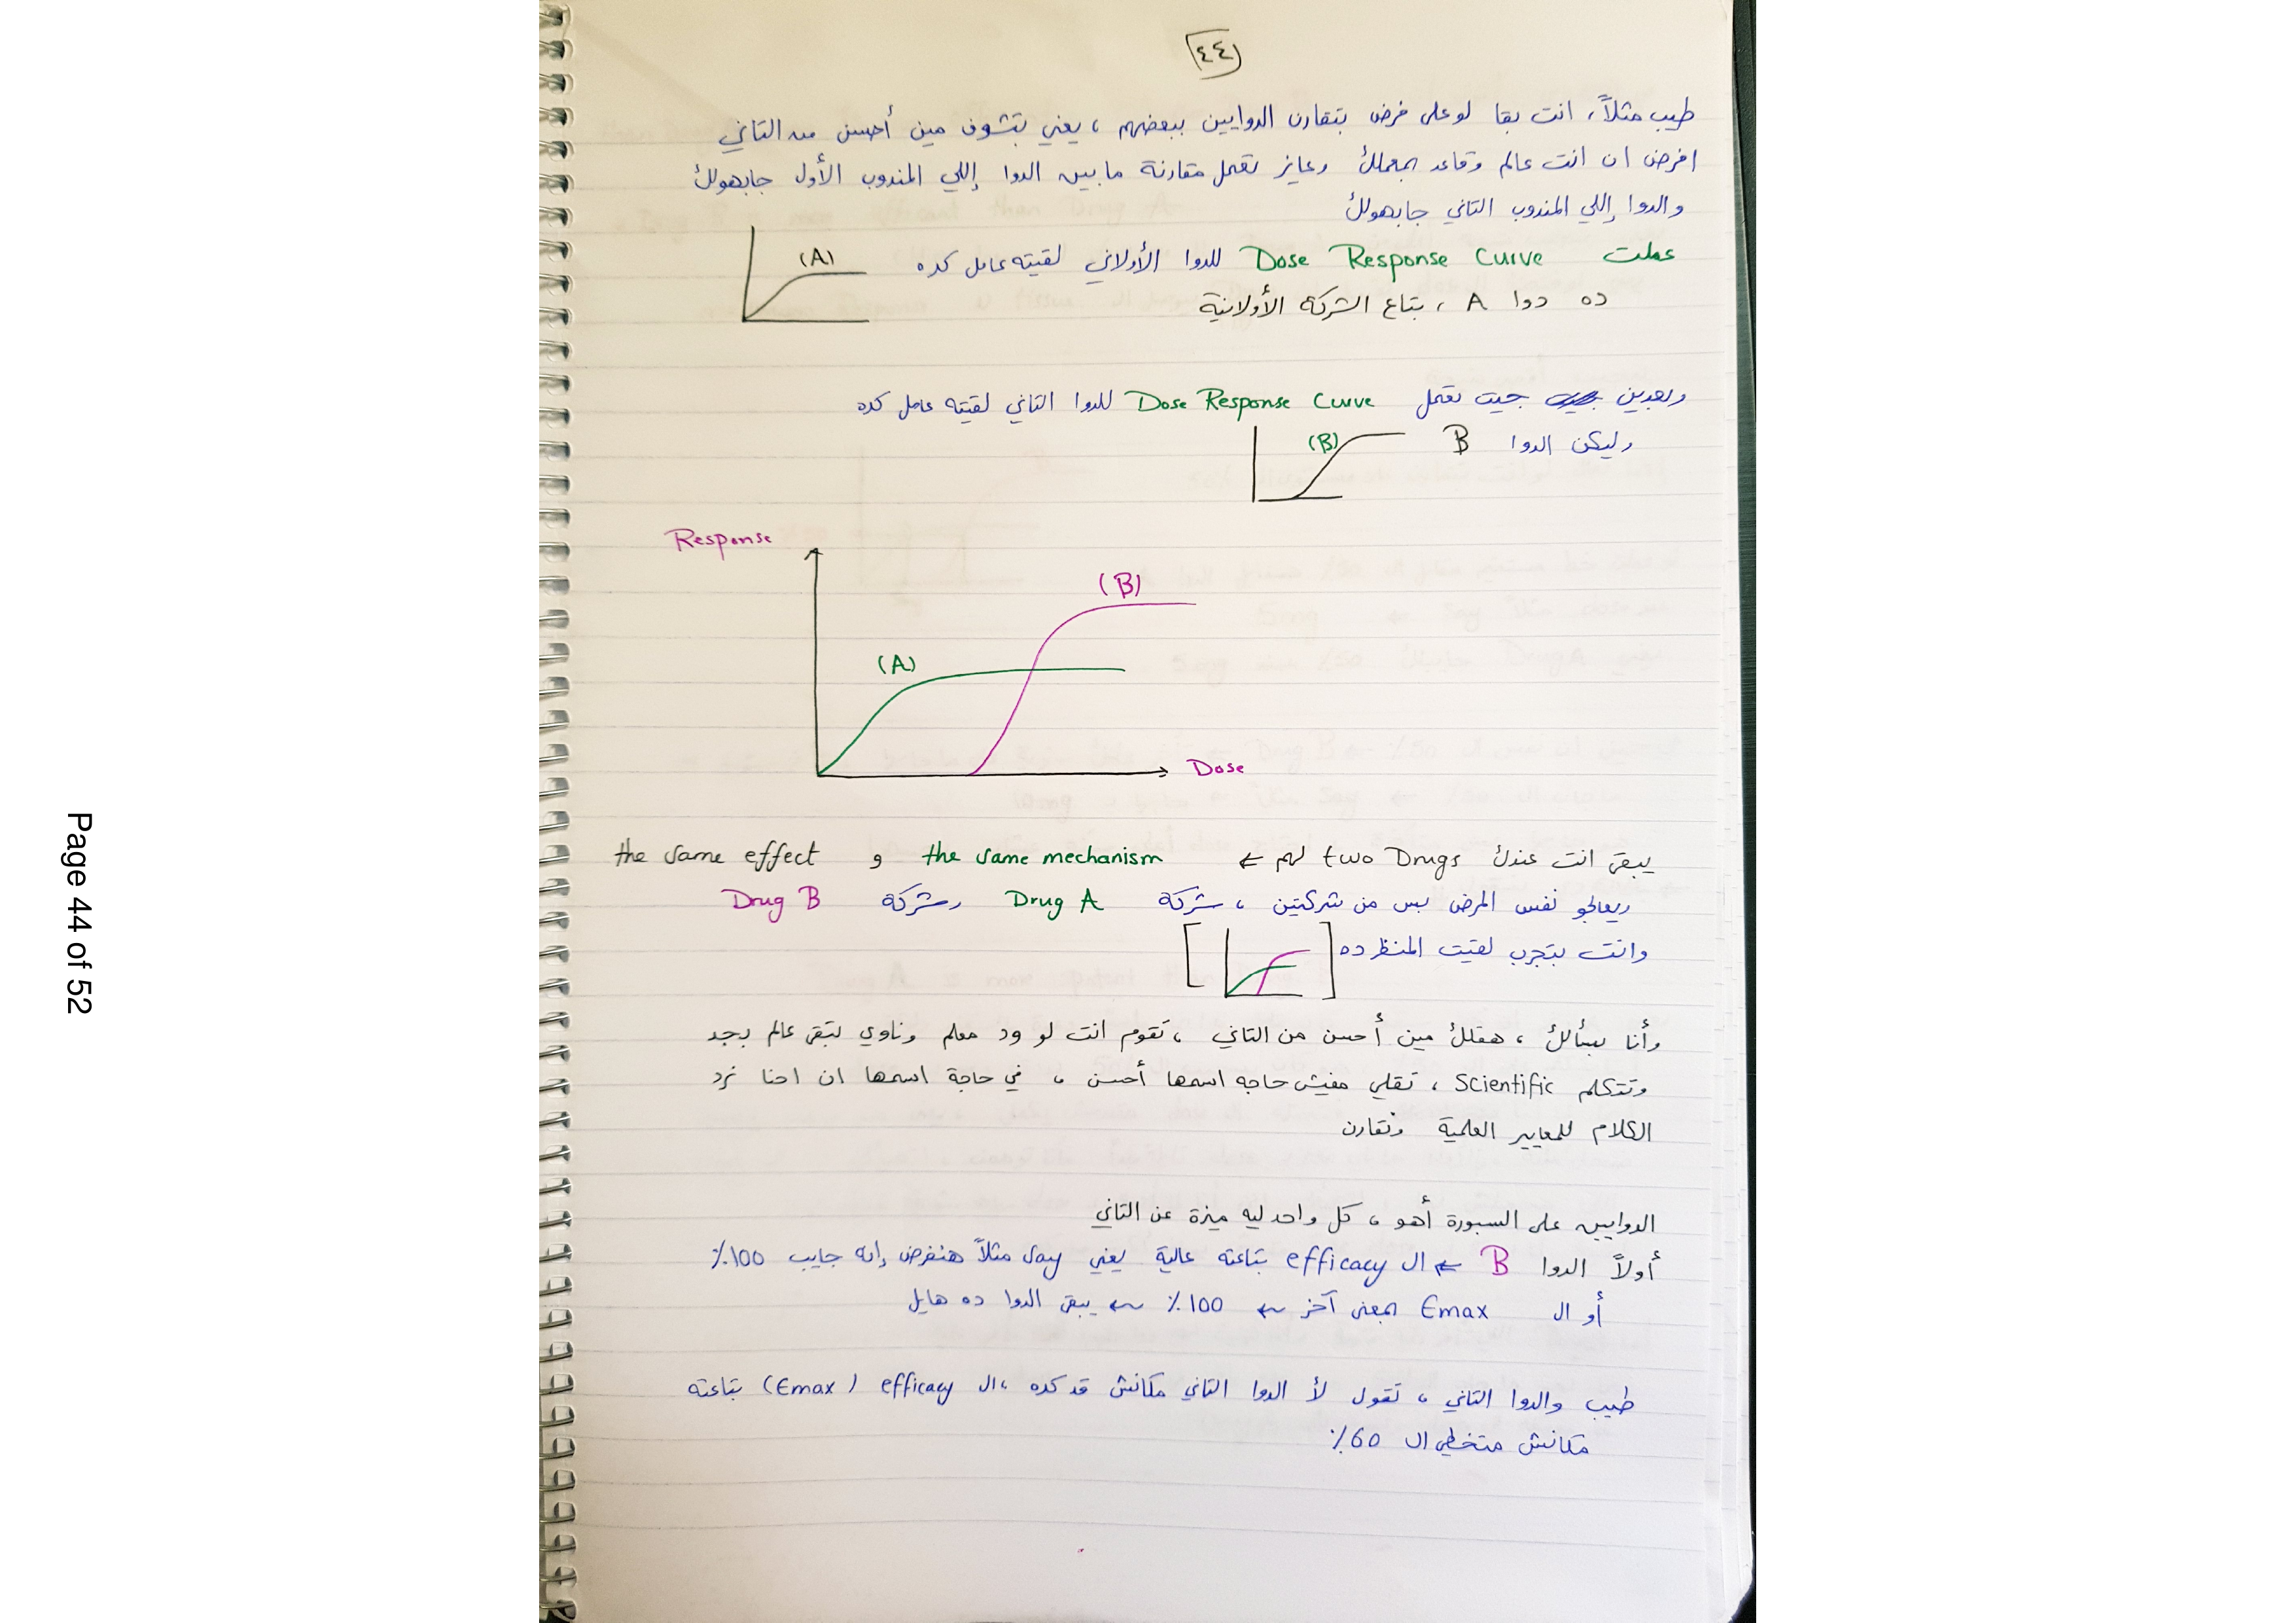 ٤٤
طيب مثلاً، انت بقا لو على فرض بتقارن الدوايين ببعضهم، يعني بتشوف مين أحسن من التاني
افرض ان انت عالم وقاعد بمعملك وعايز تعمل مقارنة ما بين الدوا إللي المندوب الأول جابهولك
والدوا إللي المندوب التاني جابهولك
عملت Dose Response Curve للدوا الأولاني لقيته عامل كده
(A)
ده دوا A ، بتاع الشركة الأولانية
وبعدين جيت تعمل Dose Response Curve للدوا التاني لقيته عامل كده
وليكن الدوا B
(B)
Response
(B)
(A)
Dose
يبقى انت عندك two Drugs لهم ← the same mechanism و the same effect
ويعالجو نفس المرض بس من شركتين ، شركة Drug A وشركة Drug B
وانت بتجرب لقيت المنظر ده
وأنا بسألك ، هقلك مين أحسن من التاني ، تقوم انت لو ود معلم وناوي تبقى عالم بجد
وتتكلم Scientific ، تقلي مفيش حاجه اسمها أحسن ، في حاجة اسمها ان احنا نرد
الكلام للمعايير العلمية ونقارن
الدوايين على السبورة أهو ، كل واحد ليه ميزة عن التاني
أولاً الدوا B ← ال efficacy بتاعته عالية يعني say مثلاً هنفرض إنه جايب 100٪
أو ال Emax بمعنى آخر ← 100٪ ← يبقى الدوا ده هايل
طيب والدوا التاني ، تقول لأ الدوا التاني مكانش قد كده ، ال efficacy (Emax) بتاعته
مكانش متخطي ال 60٪
Page 44 of 52